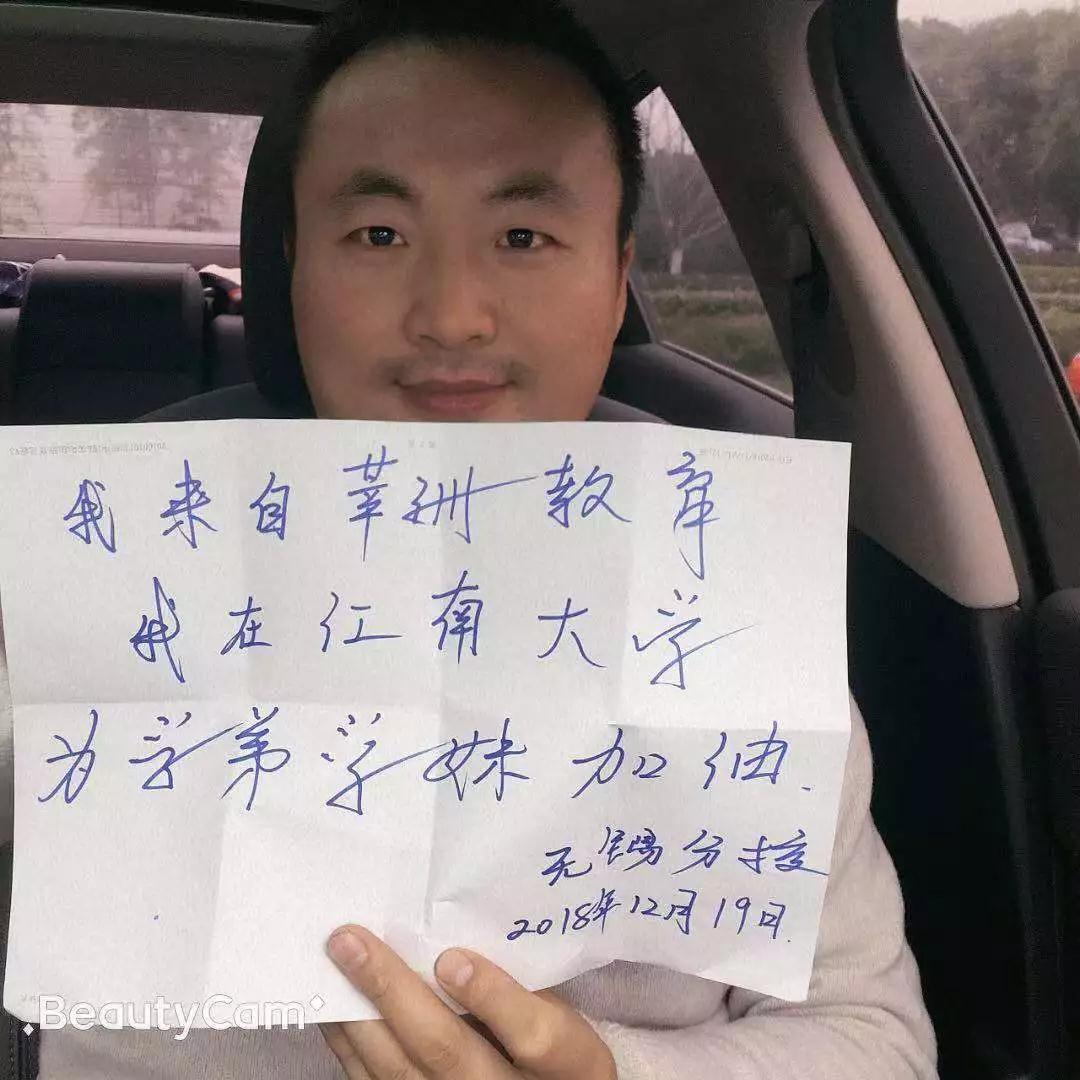 我来自莘洲教育
我在江南大学
为学弟学妹加油.
无锡分校
2018年12月19日.
BeautyCam